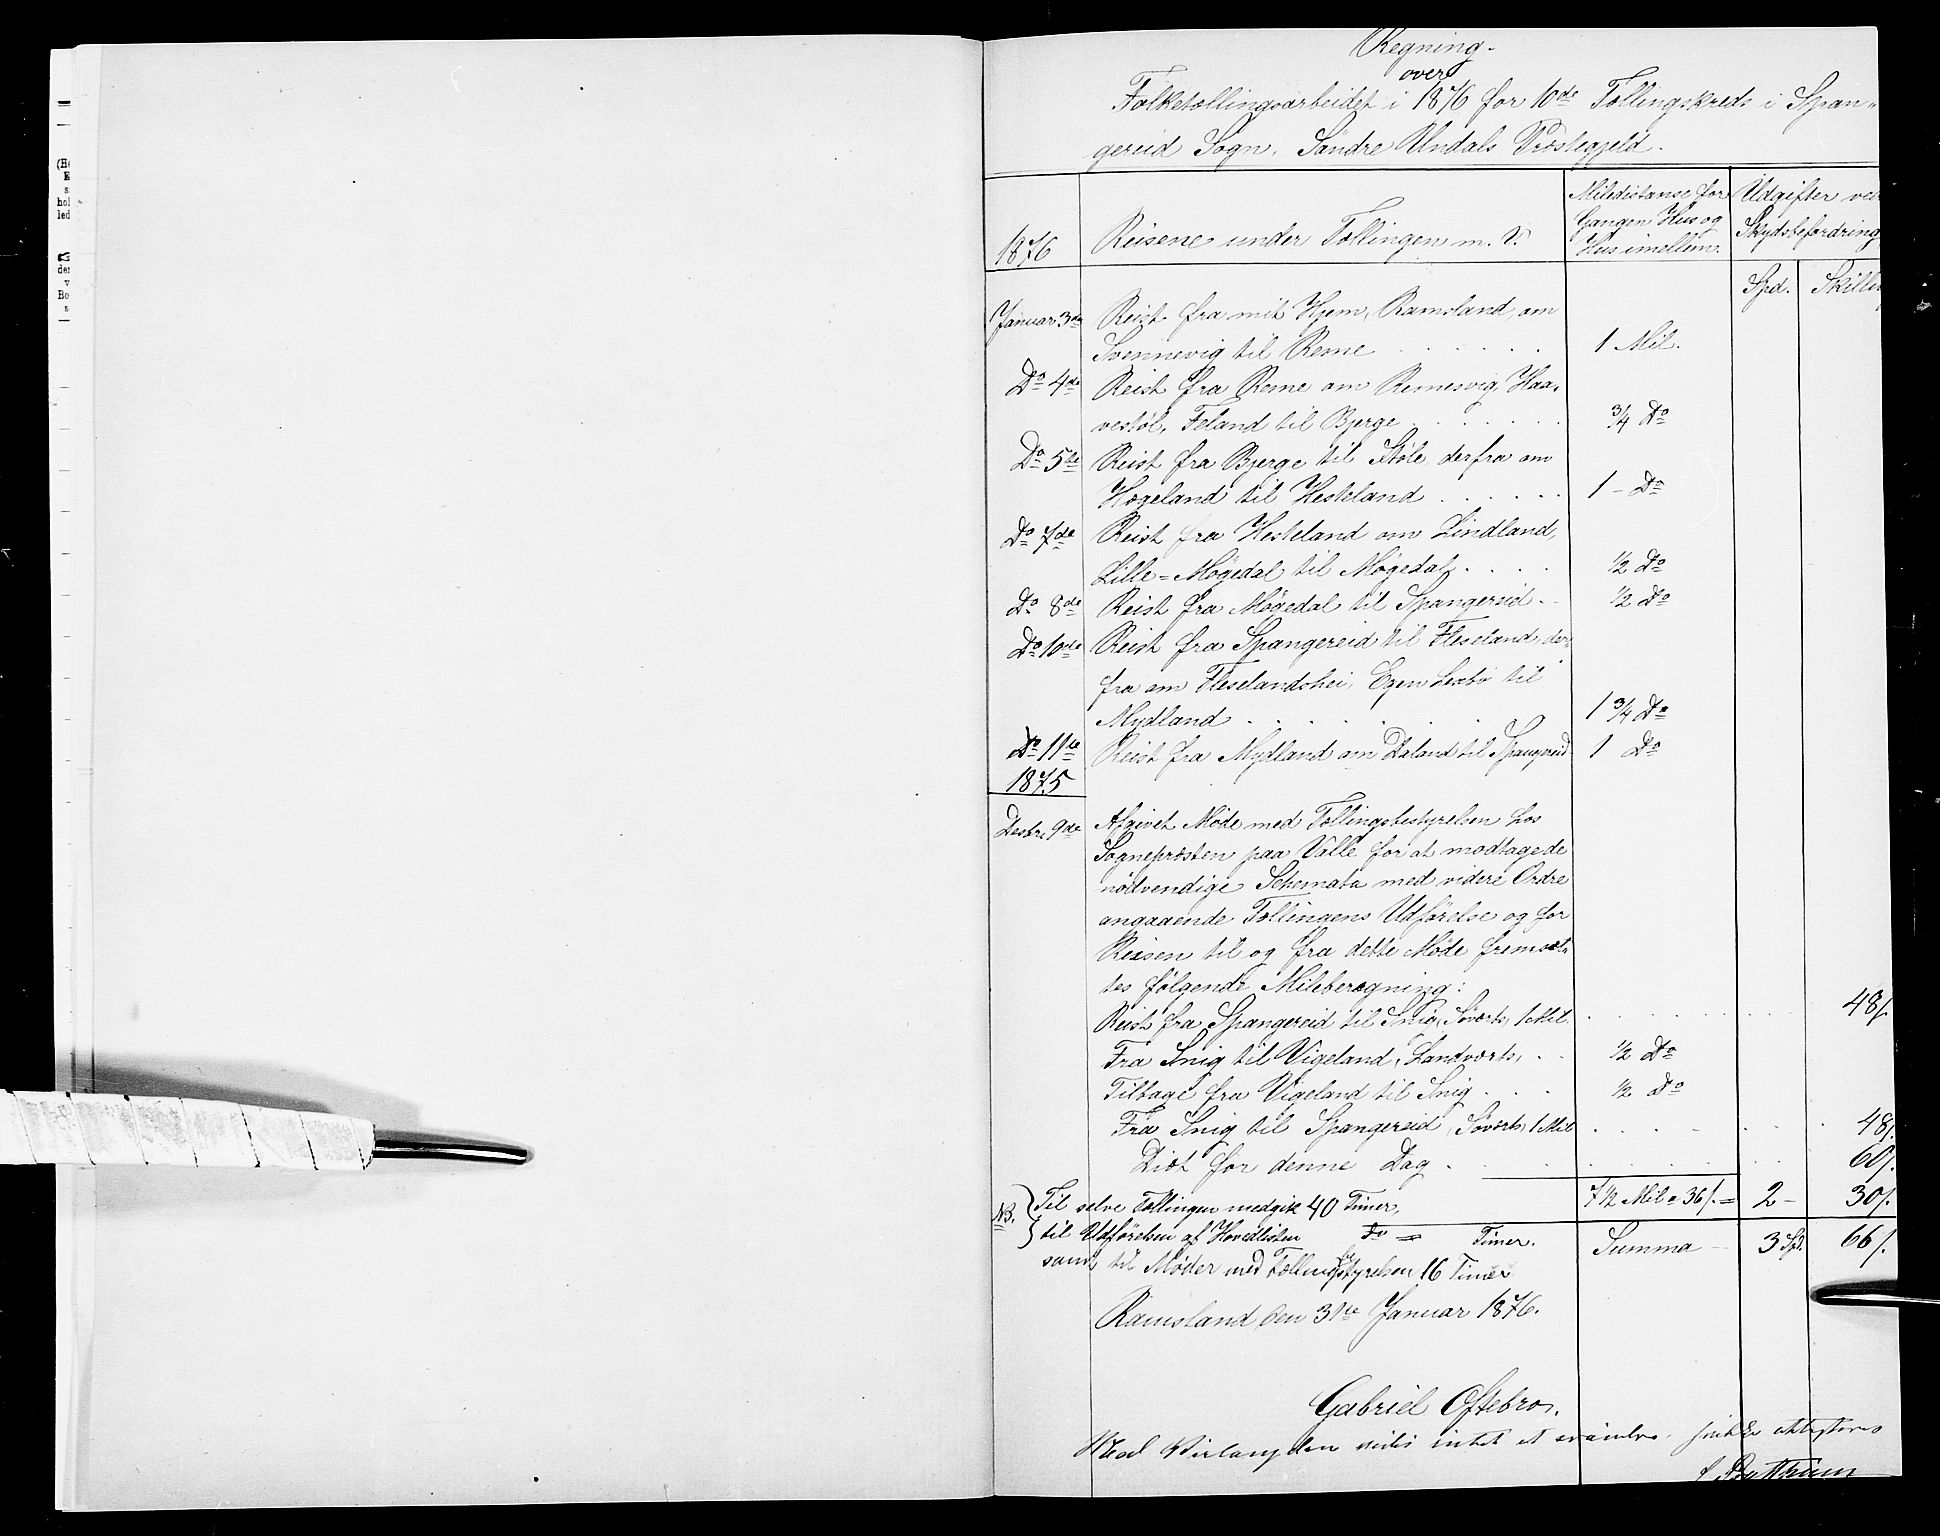 Regning
over
Folketællingsarbeidet i 1876 for 10de Tællingskreds i Span-
gereid Sogn, Söndre Undals Præstegjeld.
1876 Reisene under Tællingen m. V. Miledistanse for Gangen Hus og Hus imellem. Udgifter ved Skydsbefordring
Spd. Skilling
Januar 3die Reist fra mit Hjem, Ramsland, om
Svennevig til Reme . . . . . . 1 Mil.
Do 4de Reist fra Reme om Remesvig, Haa-
vestøl, Feland til Bjerge . . . . . . ¾ Do
Do 5te Reist fra Bjerge til Støle derfra om
Høgeland til Hesteland . . . . . . 1 - Do
Do 7de Reist fra Hesteland om Lindland,
Lille-Møgedal til Møgedal . . . . ½ Do
Do 8de Reist fra Møgedal til Spangereid . - ½ Do
Do 10de Reist fra Spangereid til Fleseland, der-
fra om Fleselandshei, Egen Lexbo til
Mydland . . . . . . 1 ¾ Do
Do 11te Reist fra Mydland om Daland til Spangereid 1 Do
1875
Desbr. 9de Afgivet Møde med Tællingsbestyrelsen hos
Sognepræsten paa Valle for at modtage de
nödvendige Schemata med videre Ordre
angaaende Tællingens Udførelse og for
Reisen til og fra dette Møde fremsæt-
tes følgende Mileberægning:
Reist fra Spangereid til Snig, Søværts, 1 Mil . . . . . . 48/.
Fra Snig til Vigeland, Landværts, . . ½ Do
Tilbage fra Vigeland til Snig . . . ½ Do
Fra Snig til Spangereid, Søværts, 1 Mil . . . . . . 48/.
Diæt for denne Dag . . . . . . 60/.
7 ½ Mil a 36/. = 2 - 30/.
NB. Til selve Tællingen medgik 40 Timer,
til Udførelsen af Hovedlisten Do = Timer. Summa - 3 Spd. 66/.
samt til Møder med Tællingsbestyrelsen 16 Timer
Ramsland den 31te Januar 1876.
Gabriel Oftebro.
intet at